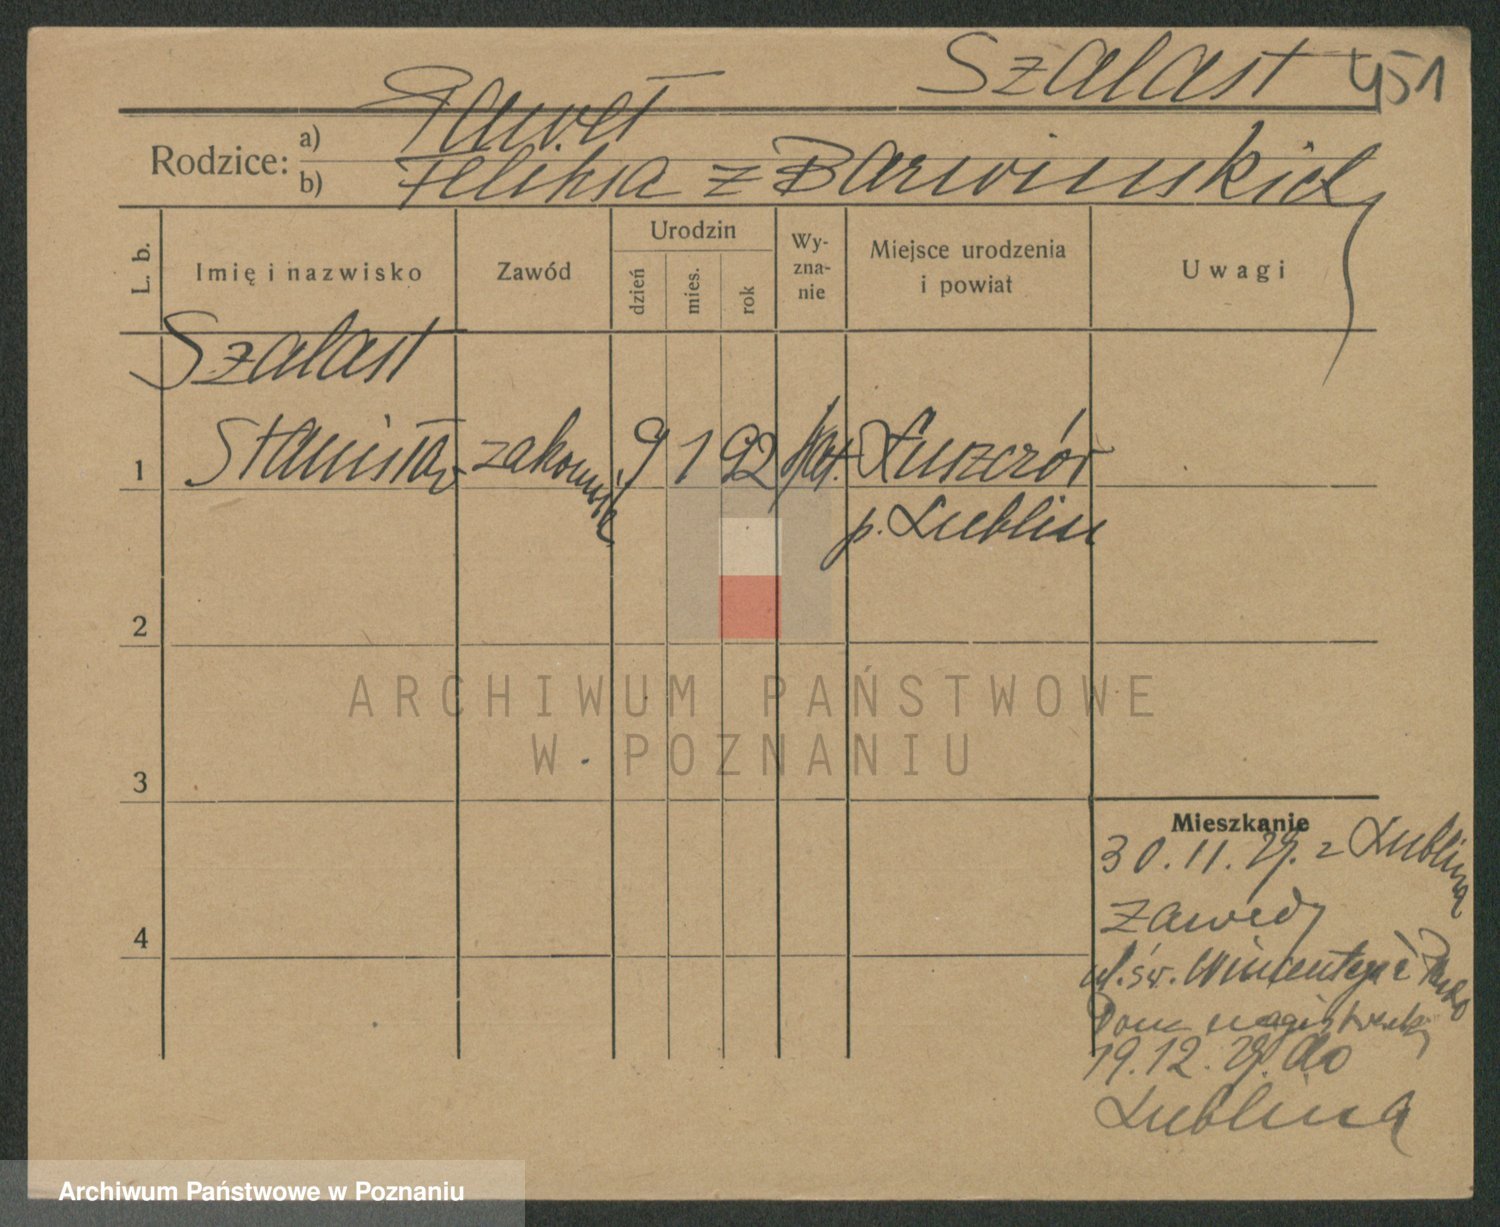 Szałast 451
Rodzice: a) Paweł
b) Feliksa z Barwinskich
L. b.
Imię i nazwisko
Zawód
Urodzin
dzień
mies.
rok
Wy-
zna-
nie
Miejsce urodzenia
i powiat
Uwagi
Szałast
1 Stanisław zakonnik 9 1 92 kat. Łuszczów
p. Lublin
2
ARCHIWUM PAŃSTWOWE
W POZNANIU
3
4
Mieszkanie
30.11.29. z Lublina
Zawedy
ul. św. Wincentego
Dom magistracki
19.12.29. do
Lublina
Archiwum Państwowe w Poznaniu